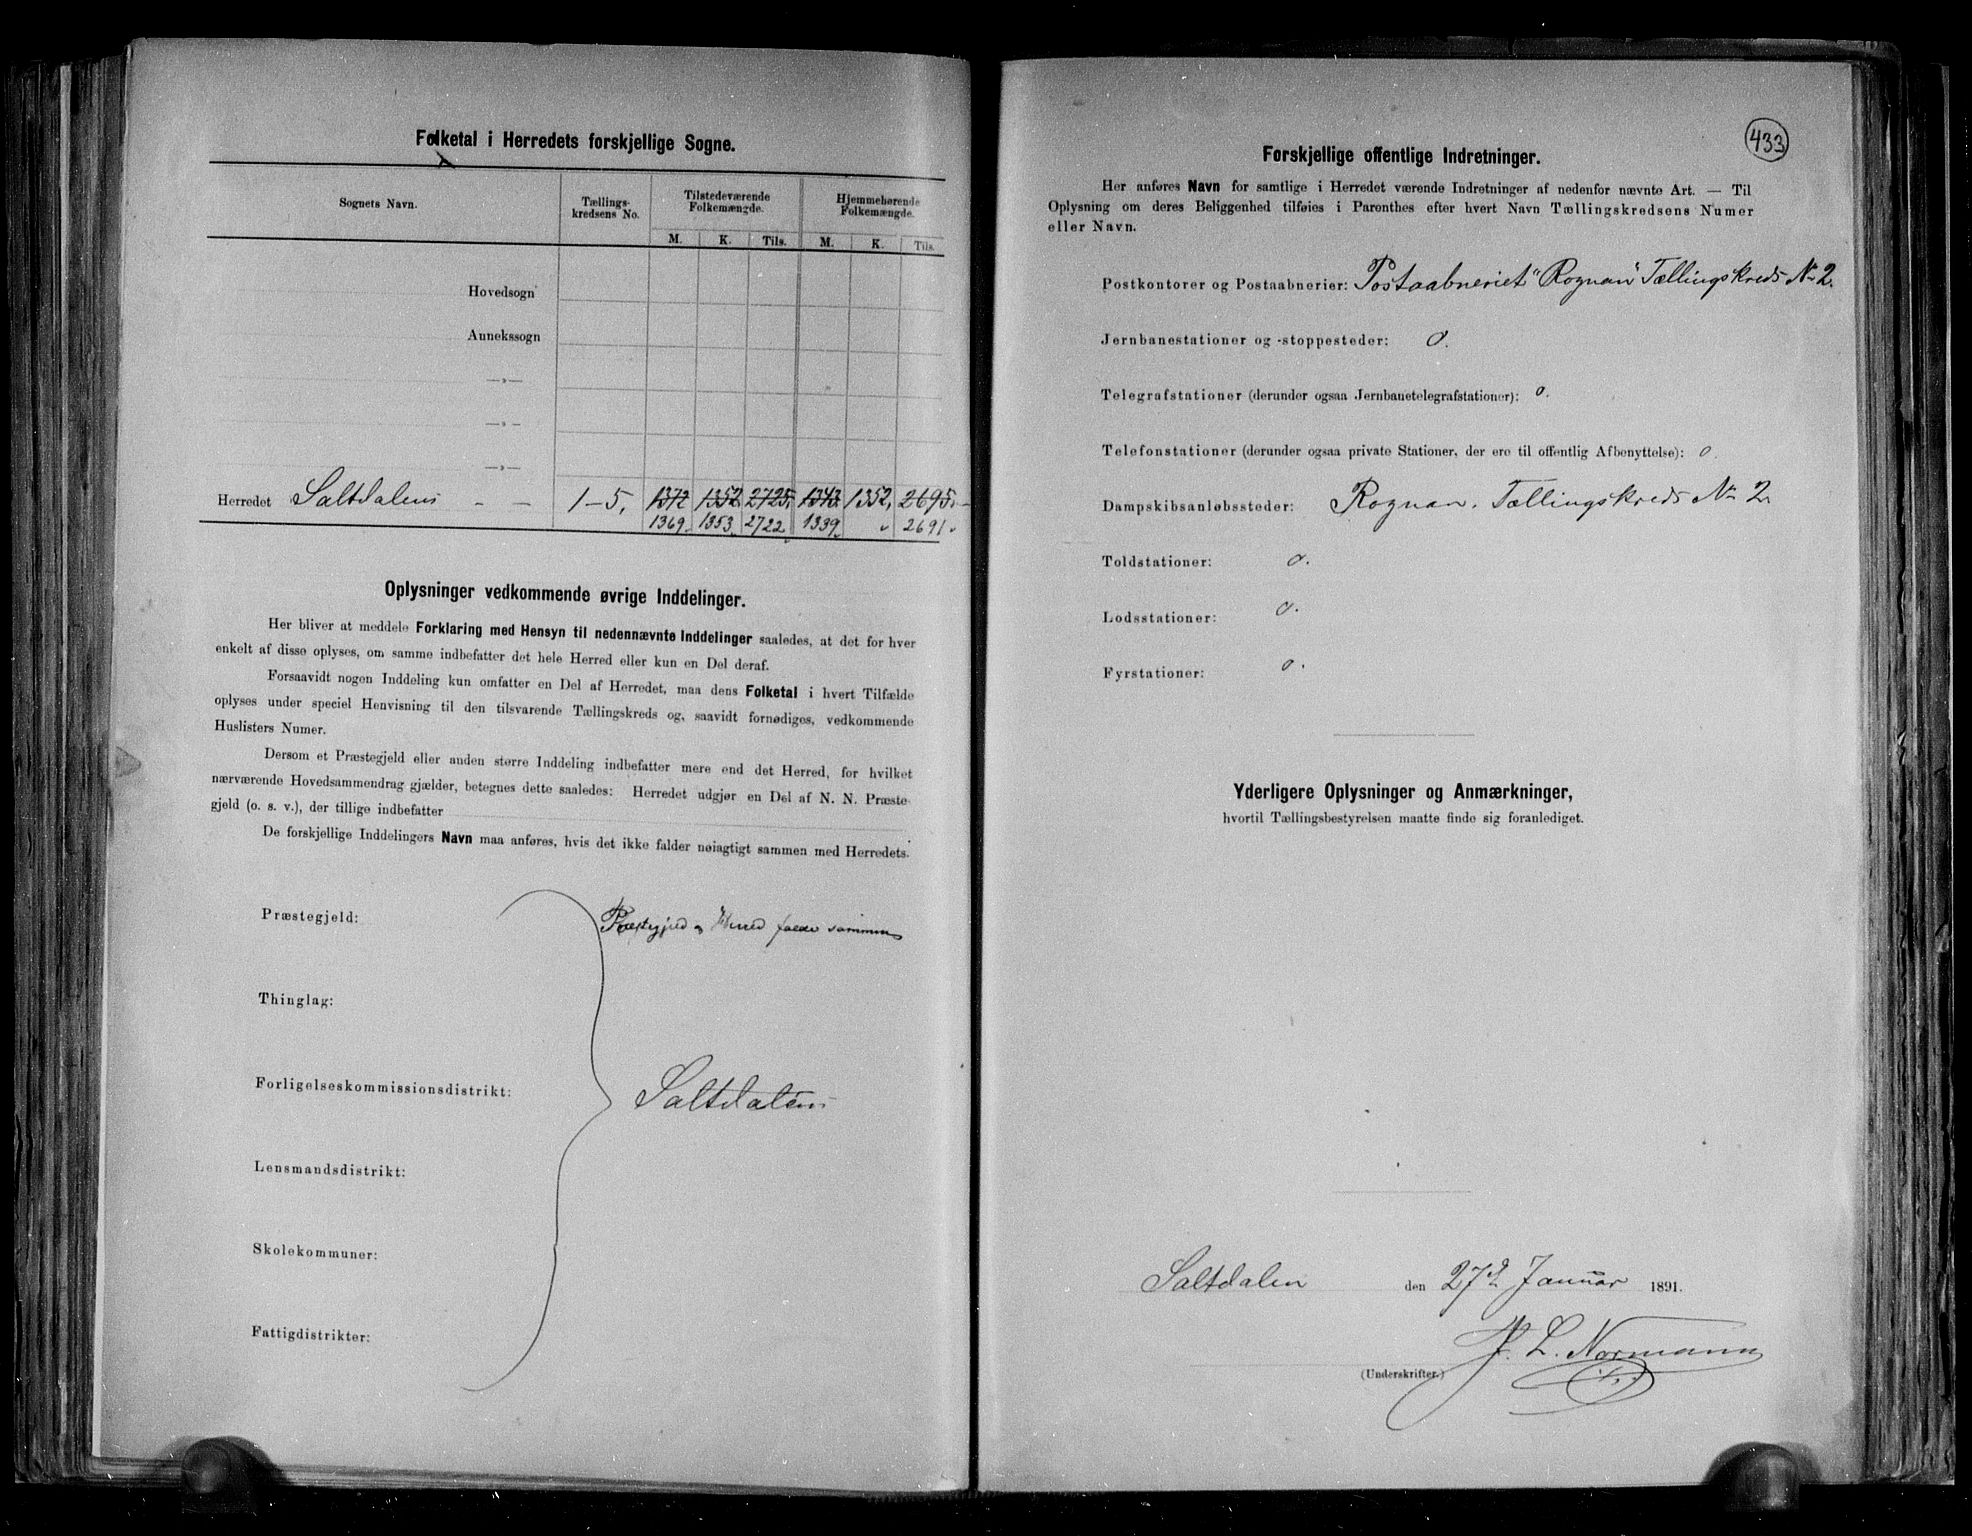 Folketal i Herredets forskjellige Sogne.
Sognets Navn.
Tællings-
kredsens No.
Tilstedeværende
Folkemængde.
Hjemmehørende
Folkemængde.
M. K. Tils. M. K. Tils.
Hovedsogn
Annekssogn
—»—
—»—
—»—
Herredet Saltdalens - - 1-5, 1372 1352 2725, 1343, 1352, 2695,
1369, 1353, 2722 1339, „ 2691,
Oplysninger vedkommende øvrige Inddelinger.
Her bliver at meddele Forklaring med Hensyn til nedennævnte Inddelinger saaledes, at det for hver
enkelt af disse oplyses, om samme indbefatter det hele Herred eller kun en Del deraf.
Forsaavidt nogen Inddeling kun omfatter en Del af Herredet, maa dens Folketal i hvert Tilfælde
oplyses under speciel Henvisning til den tilsvarende Tællingskreds og, saavidt fornødiges, vedkommende
Huslisters Numer.
Dersom et Præstegjeld eller anden større Inddeling indbefatter mere end det Herred, for hvilket
nærværende Hovedsammendrag gjælder, betegnes dette saaledes: Herredet udgjør en Del af N. N. Præste-
gjeld (o. s. v.), der tillige indbefatter
De forskjellige Inddelingers Navn maa anføres, hvis det ikke falder nøiagtigt sammen med Herredets.
Præstegjeld: Præstegjeld og Herred falde sammen
Thinglag:
Forligelseskommissionsdistrikt: Saltdalens
Lensmandsdistrikt:
Skolekommuner:
Fattigdistrikter:
433
Forskjellige offentlige Indretninger.
Her anføres Navn for samtlige i Herredet værende Indretninger af nedenfor nævnte Art. — Til
Oplysning om deres Beliggenhed tilføies i Parenthes efter hvert Navn Tællingskredsens Numer
eller Navn.
Postkontorer og Postaabnerier: Postaabneriet "Rognan" Tællingskreds No 2.
Jernbanestationer og -stoppesteder: o.
Telegrafstationer (derunder ogsaa Jernbanetelegrafstationer): o.
Telefonstationer (derunder ogsaa private Stationer, der ere til offentlig Afbenyttelse): o.
Dampskibsanløbssteder: Rognan. Tællingskreds No 2
Toldstationer: o.
Lodsstationer: o.
Fyrstationer: o.
Yderligere Oplysninger og Anmærkninger,
hvortil Tællingsbestyrelsen maatte finde sig foranlediget.
Saltdalen den 27d Januar 1891.
L. Normann
(Underskrifter.)